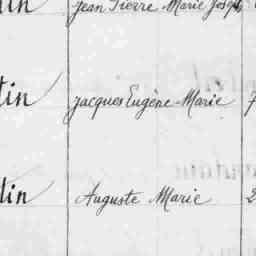 Jean Pierre Marie Josep
tin Jacques Eugène Marie 7
din Auguste Marie 2